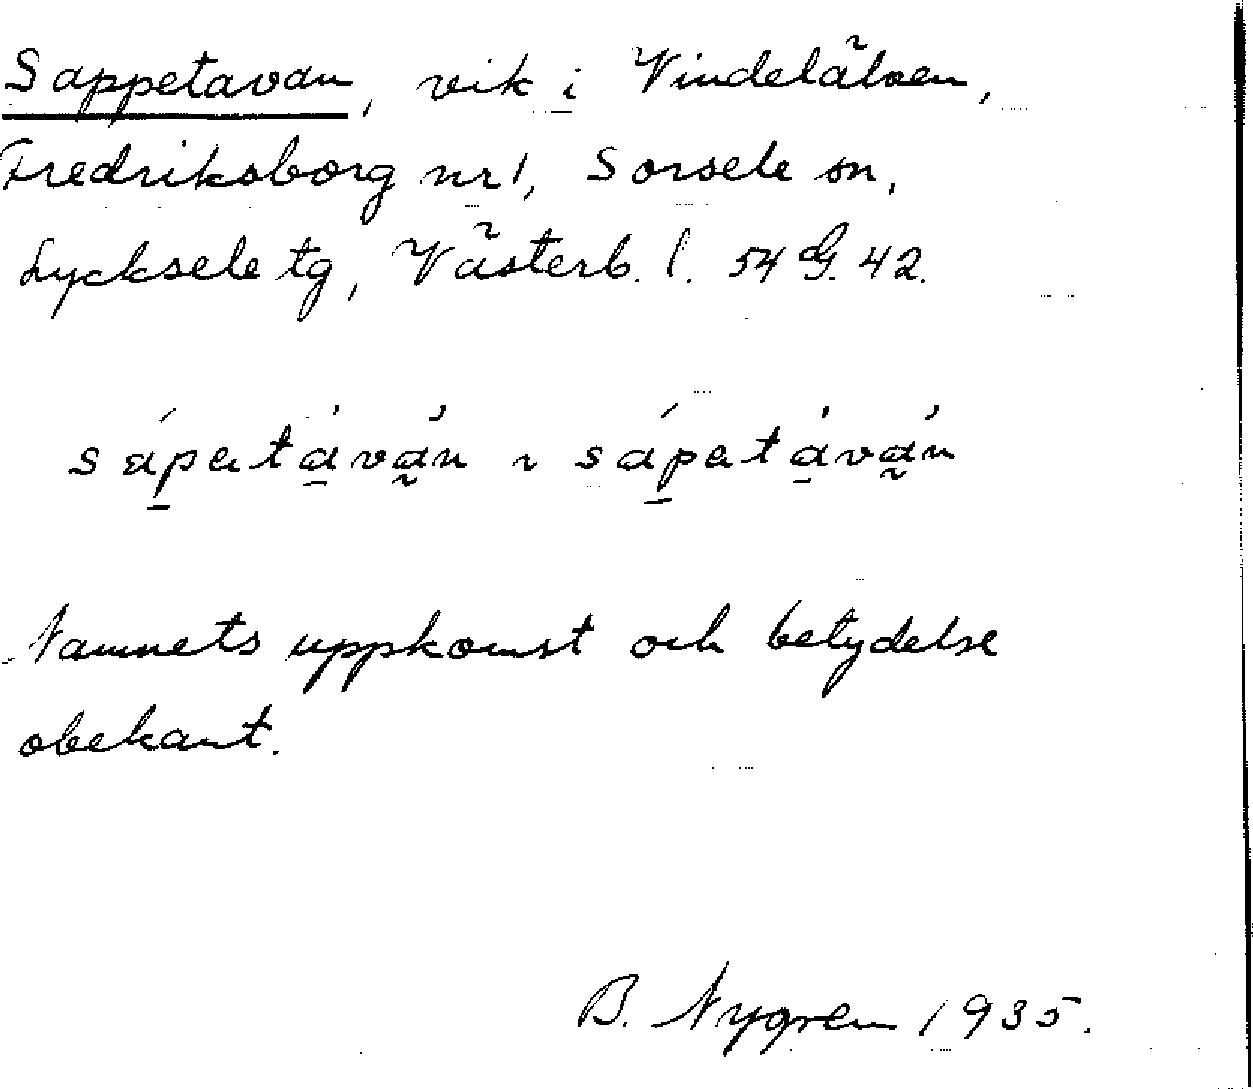 Sappetavan, vik i Vindelälven,
Fredriksborg nr 1, Sorsele sn,
Lycksele tg, Västerb. l. 54 G. 42.
sápatàván ~ sápatàván
Namnets uppkomst och betydelse
obekant.
B. Nygren 1935.